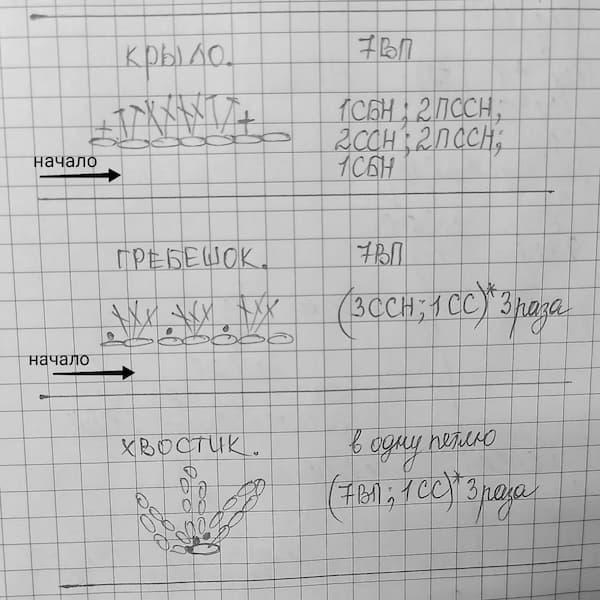 КРЫЛО.
7ВП
1СБН; 2ПССН;
2ССН; 2ПССН;
1СБН
начало
ГРЕБЕШОК.
7ВП
(3ССН; 1СС)*3раза
начало
ХВОСТИК.
в одну петлю
(7ВП; 1СС)*3раза